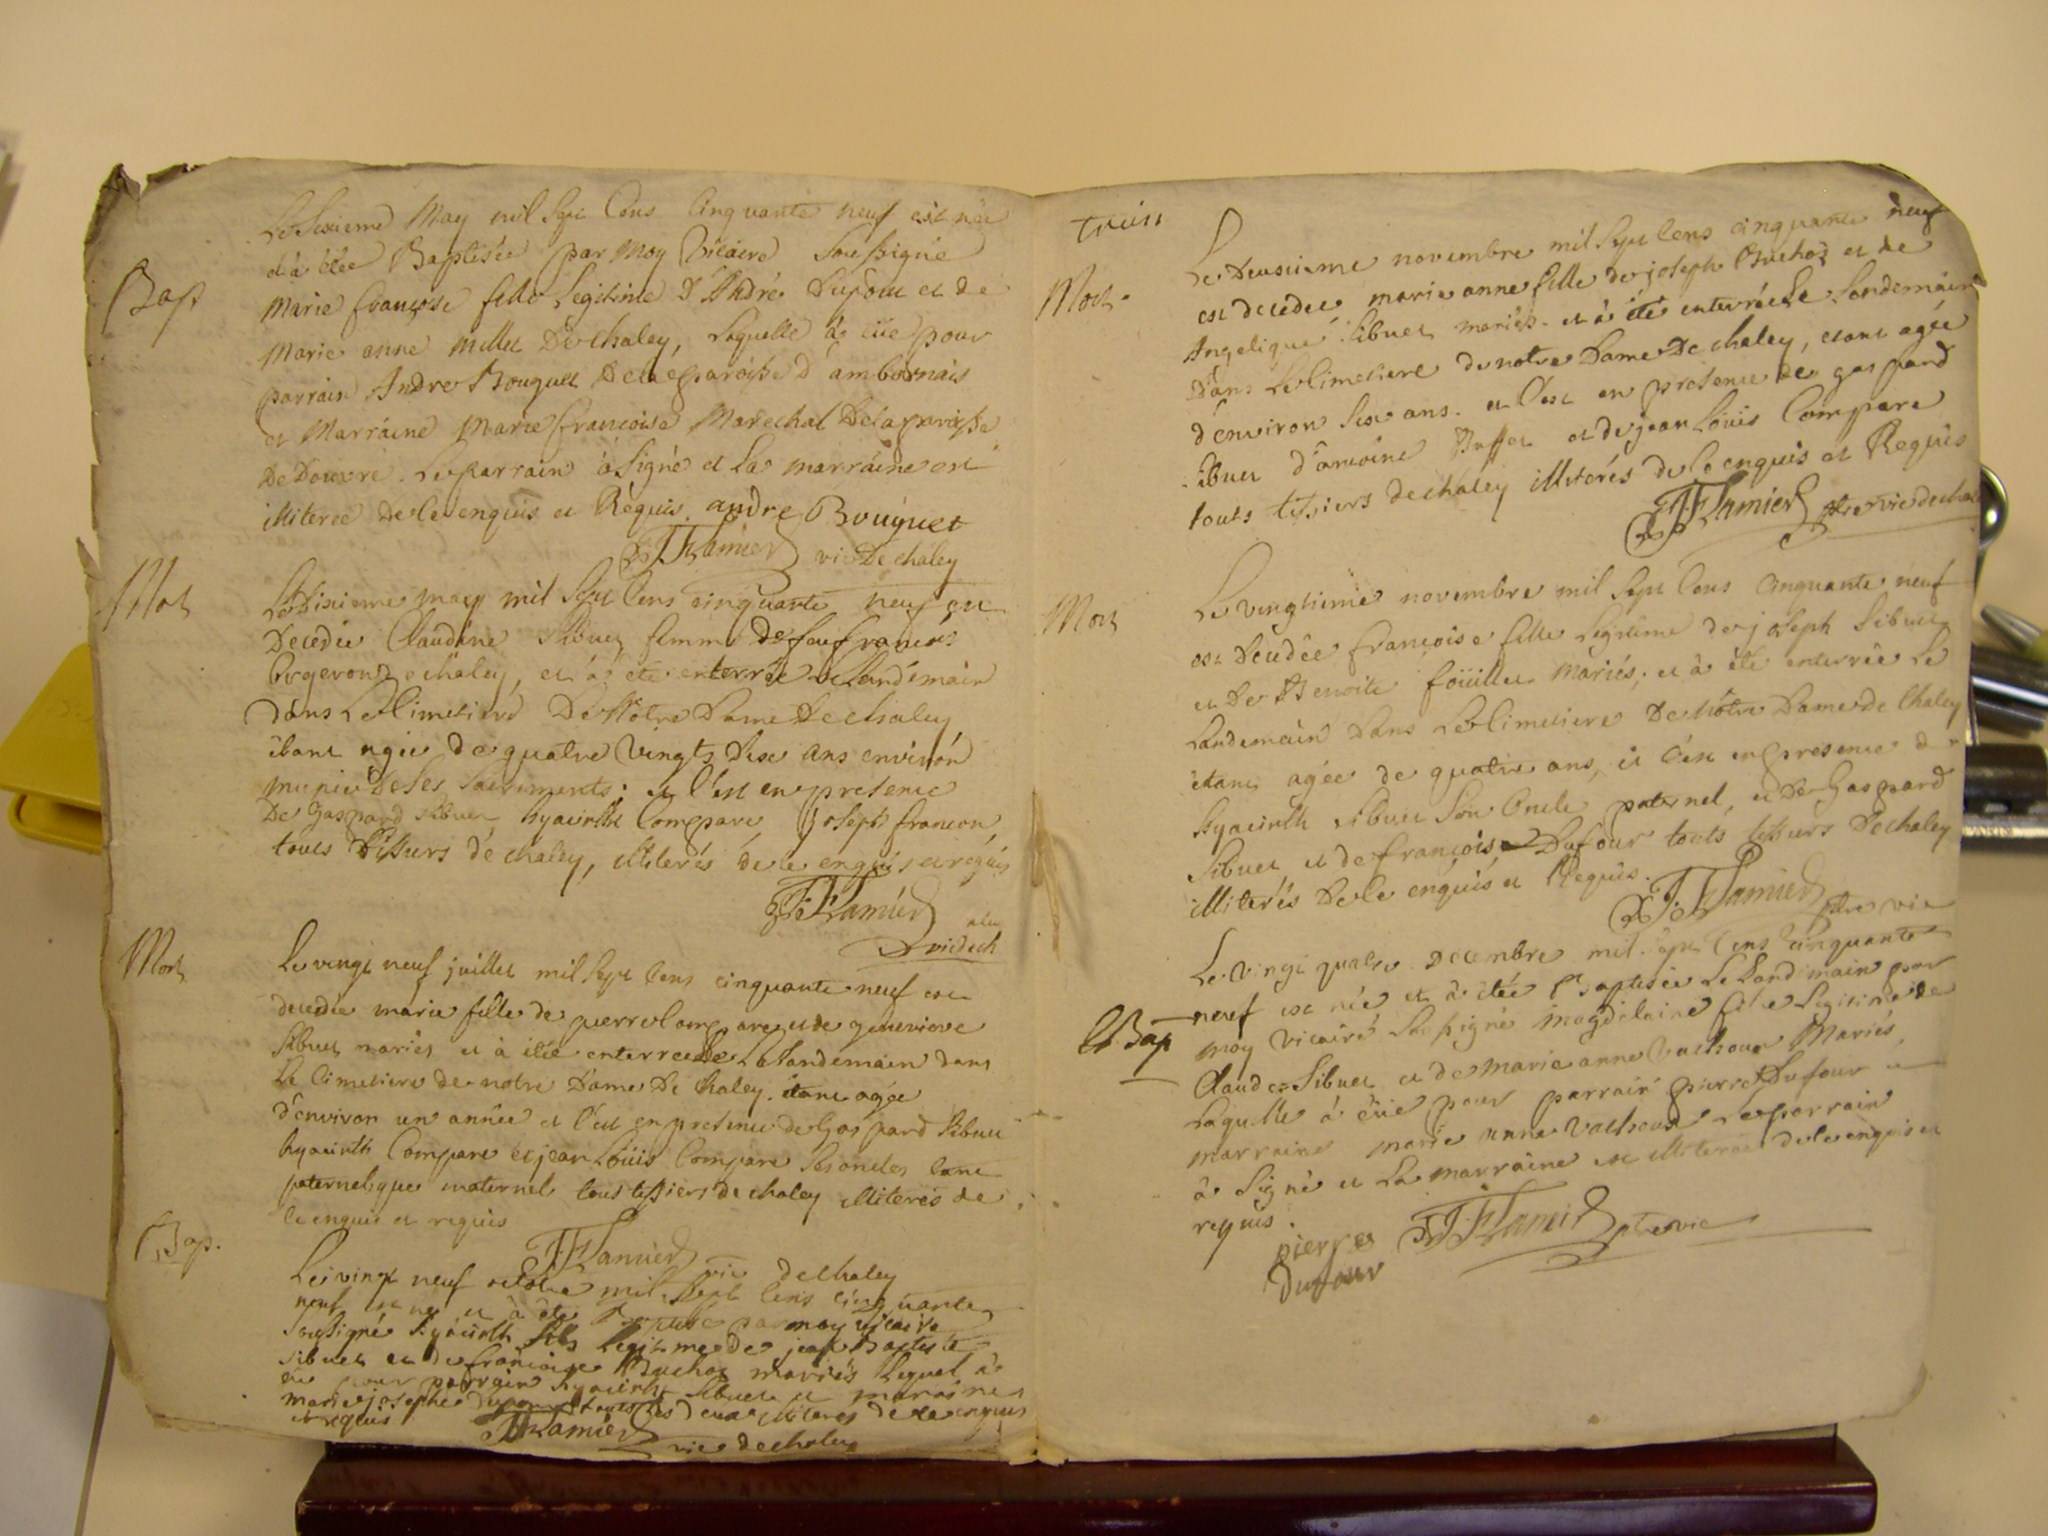 Bap
Le Sixieme May mil Sept Cens Cinquante neuf est née
et à étée Baptisée par moy Vicaire Soussigné
Marie françoise fille Legitime D'André Dupont et de
Marie anne millet De chaley, Laquelle à eüe pour
parrain Andre Bouguet De la paroisse D'ambornais
et Marráine Marie françoise Maréchal De la paroisse
De Douvre. Le parrain à Signé et La marráine est
illiterée de le enquis et Requis. andre Bouguet
vic De chaley
Mort
Le Sixieme may mil Sept Cens cinquante neuf est
Decedée Claudine Sibuet femme de feu françois
De chaley, et à été enterrée Le Landémain
Dans Le Cimetiere De Nôtre Dame De chaley
étant agée de quatre vingts Dix ans environ
munie De Ses Sacrements: et C'est en presence
De Gaspard Sibuet hyacinth Compare, Joseph francon,
touts tissiers de chaley, illiterés de le enquis et requis
vic de ch
Mort
Le vingt neuf juillet mil Sept Cens cinquante neuf est
decedée marie fille de pierre Compare et de genevieve
Sibuet mariés et à étée enterrée Le Landemain dans
Le Cimetiere de notre Dame De Chaley. étant agée
d'environ un année et C'est en presence de Gaspard Sibuet
hyacinth Compare et jean Loüis Compare Ses oncles tant
paternel que maternel tous tissiers de chaley illiterés de
le enquis et requis
vic de chaley
Bap.
Le vingt neuf octobre mil Sept Cens cinquante
neuf est né et à été Baptisé par moy vicaire
Soussigné hyacinth fils Legitime de jean Baptiste
Sibuet et de françoise Buchoz mariés Lequel à
eu pour parrain hyacinth Sibuet et maraine
marie josephe Dupont touts Les deux illiteres de le enquis
et requis
vic de chaley
Mort
Le Deuxieme novembre mil Sept Cens cinquante neuf
est decedée marie anne fille de joseph Buchoz et de
Angelique Sibuet mariés. et à été enterrée Le Landemain
Dans Le Cimetiere de notre Dame De chaley, étant agée
d'environ Six ans. et C'est en presence de gaspard
Sibuet d'antoine Buffet et de jean Loüis Compare
touts tissiers de chaley illiterés de le enquis et Requis
ptre vic de chaley
Mort
Le vingtieme novembre mil Sept Cens Cinquante neuf
est Decedée françoise fille Legitime de joseph Sibuet
et De Benoite foüillet mariés; et à été enterrée Le
Landemain Dans Le Cimetiere De Notre Dame de Chaley
étant agée de quatre ans, et C'est en presence d
hyacinth Sibuet Son Oncle paternel, et De Gaspard
Sibuet et de françois Dufour touts tissiers De chaley
illiterés De le enquis et Requis.
ptre vic
Bap
Le vingt quatre Decembre mil Sept Cens Cinquante
neuf est née et à étée Baptisée Le Landemain par
moy vicaire Soussigné magdelaine fille Legitime de
Claude Sibuet et de marie anne Mariés
Laquelle à eüe pour parrain pierre Dufour et
marraine marie anne Le parrain
à Signé et La marraine est illiterée de le enquis et
requis.
pierre
Dufour
ptre vic